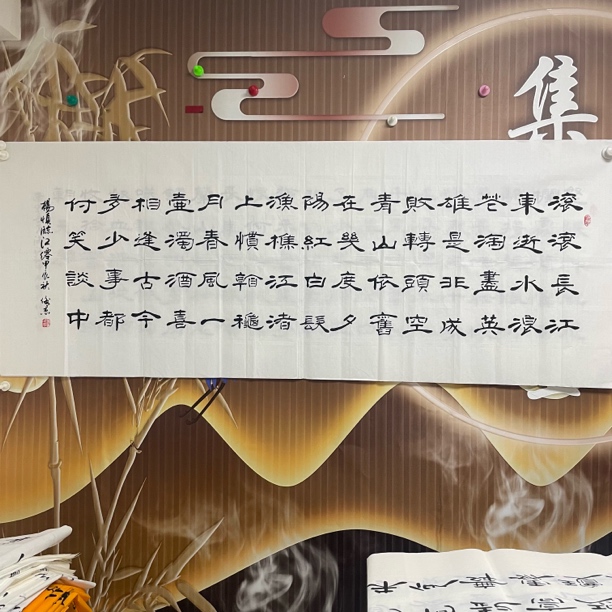 滾滾長江
東逝水浪
花淘盡英
雄是非成
敗轉頭空
青山依舊
在幾度夕
陽紅白髮
漁樵江渚
上慣看穐
月春風一
壺濁酒喜
相逢古今
多少事都
付笑談中
楊慎臨江僊甲辰秋
集